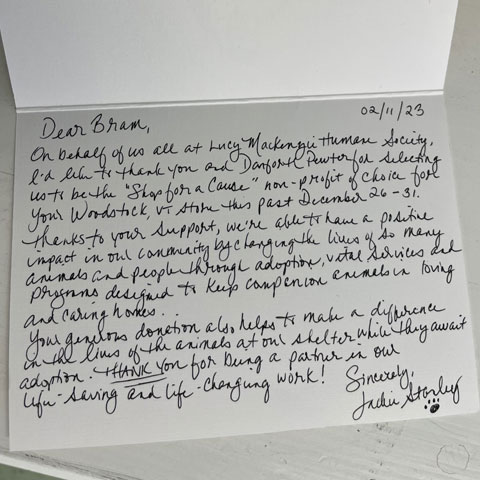 02/11/23
Dear Bram,
On behalf of us all at Lucy Mackenzie Humane Society,
I'd like to thank you and Danforth Pewter for selecting
us to be the "Shop for a Cause" non-profit of choice for
your Woodstock, VT store this past December 26-31.
Thanks to your support, we're able to have a positive
impact in our community by changing the lives of so many
animals and people through adoption, vital services and
programs designed to keep companion animals in loving
and caring homes..
Your generous donation also helps to make a difference
in the lives of the animals at our shelter while they await
adoption. THANK you for being a partner in our
life-saving and life-changing work!
Sincerely,
Jackie Stanley